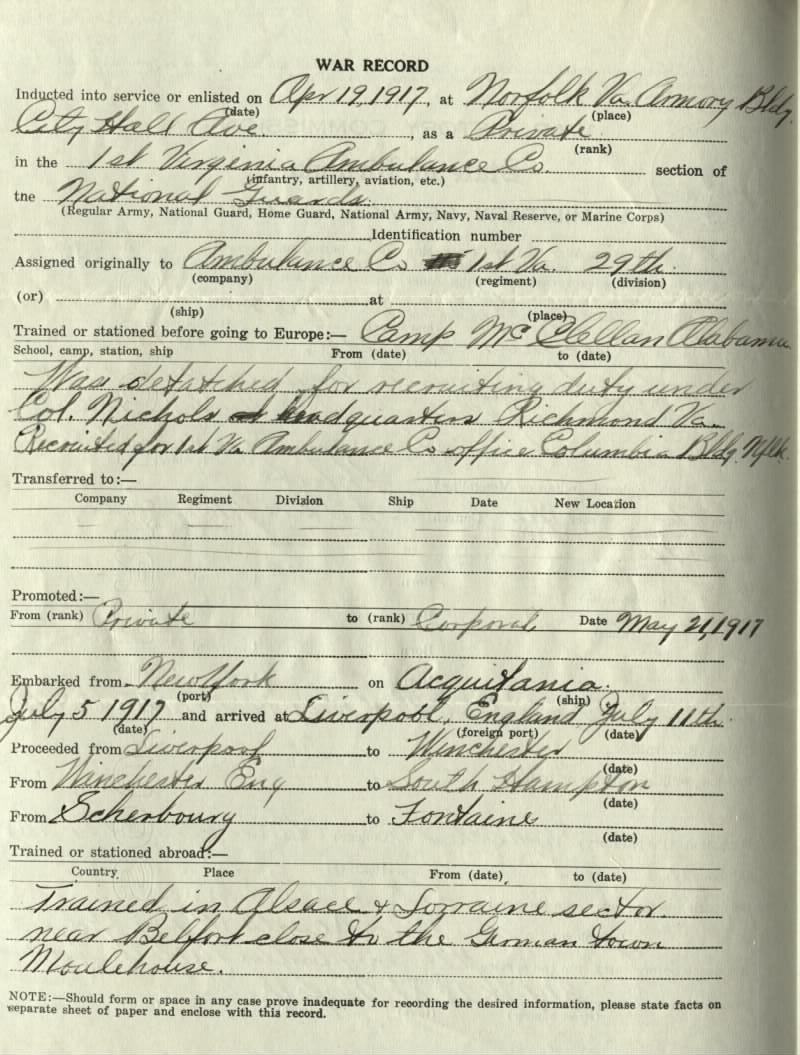 WAR RECORD
Inducted into service or enlisted on Apr 19, 1917, at Norfolk Va. Armory Bldg.
(date) (place)
City Hall Ave, as a Private
(rank)
in the 1st Virginia Ambulance Co. section of
(infantry, artillery, aviation, etc.)
tne National Guards.
(Regular Army, National Guard, Home Guard, National Army, Navy, Naval Reserve, or Marine Corps)
Identification number
Assigned originally to Ambulance Co 1st Va. 29th.
(company) (regiment) (division)
(or) at
(ship) (place)
Trained or stationed before going to Europe:— Camp McClellan Alabama
School, camp, station, ship From (date) to (date)
Was detatched for recruiting duty under
Col. Nichols headquarters Richmond Va.
Recruited for 1st Va Ambulance Co office Columbia Bldg. Nfk.
Transferred to:—
Company Regiment Division Ship Date New Location
Promoted:—
From (rank) Private to (rank) Corporal Date May 21, 1917
Embarked from New York on Acquitania.
(port) (ship)
July 5 1917 and arrived at Liverpool, England July 11th.
(date) (foreign port) (date)
Proceeded from Liverpool to Winchester
(date)
From Winchester Eng to South Hampton
(date)
From Scherbourg to Fontaine
(date)
Trained or stationed abroad:—
Country Place From (date) to (date)
Trained in Alsace & Lorraine sector.
near Belfort close to the German town
Moulehouse.
NOTE:—Should form or space in any case prove inadequate for recording the desired information, please state facts on
separate sheet of paper and enclose with this record.